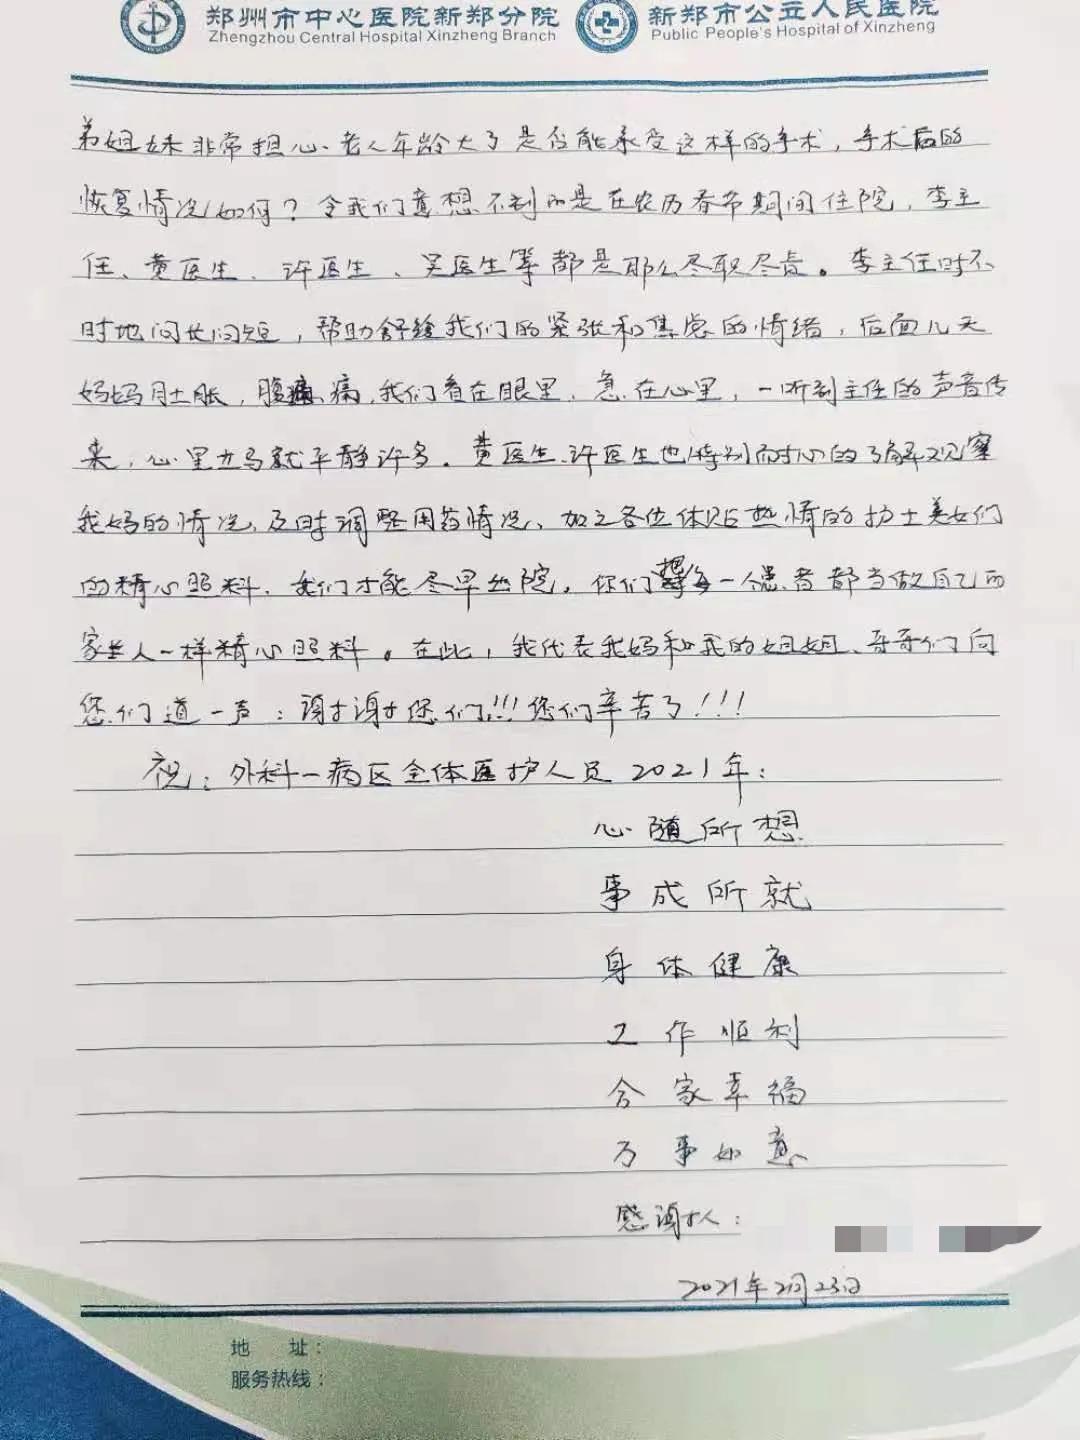 郑州市中心医院新郑分院
Zhengzhou Central Hospital Xinzheng Branch
新郑市公立人民医院
Public People's Hospital of Xinzheng
弟姐妹非常担心老人年龄大了是否能承受这样的手术，手术后的
恢复情况如何？令我们意想不到的是在农历春节期间住院，李主
任、黄医生、许医生、吴医生等都是那么尽职尽责。李主任时不
时地问长问短，帮助舒缓我们的紧张和焦虑的情绪，后面几天
妈妈肚胀，腹痛，我们看在眼里，急在心里，一听到主任的声音传
来，心里立马就平静许多。黄医生、许医生也特别耐心的了解观察
我妈的情况，及时调整用药情况、加之各位体贴热情的护士美女们
的精心照料，我们才能尽早出院，你们把每一个患者都当做自己的
家人一样精心照料。在此，我代表我妈和我的姐姐、哥哥们向
您们道一声：谢谢您们!!!您们辛苦了!!!
祝：外科一病区全体医护人员2021年：
心随所想
事成所就
身体健康
工作顺利
合家幸福
万事如意
感谢人：
2021年2月23日
地 址：
服务热线：